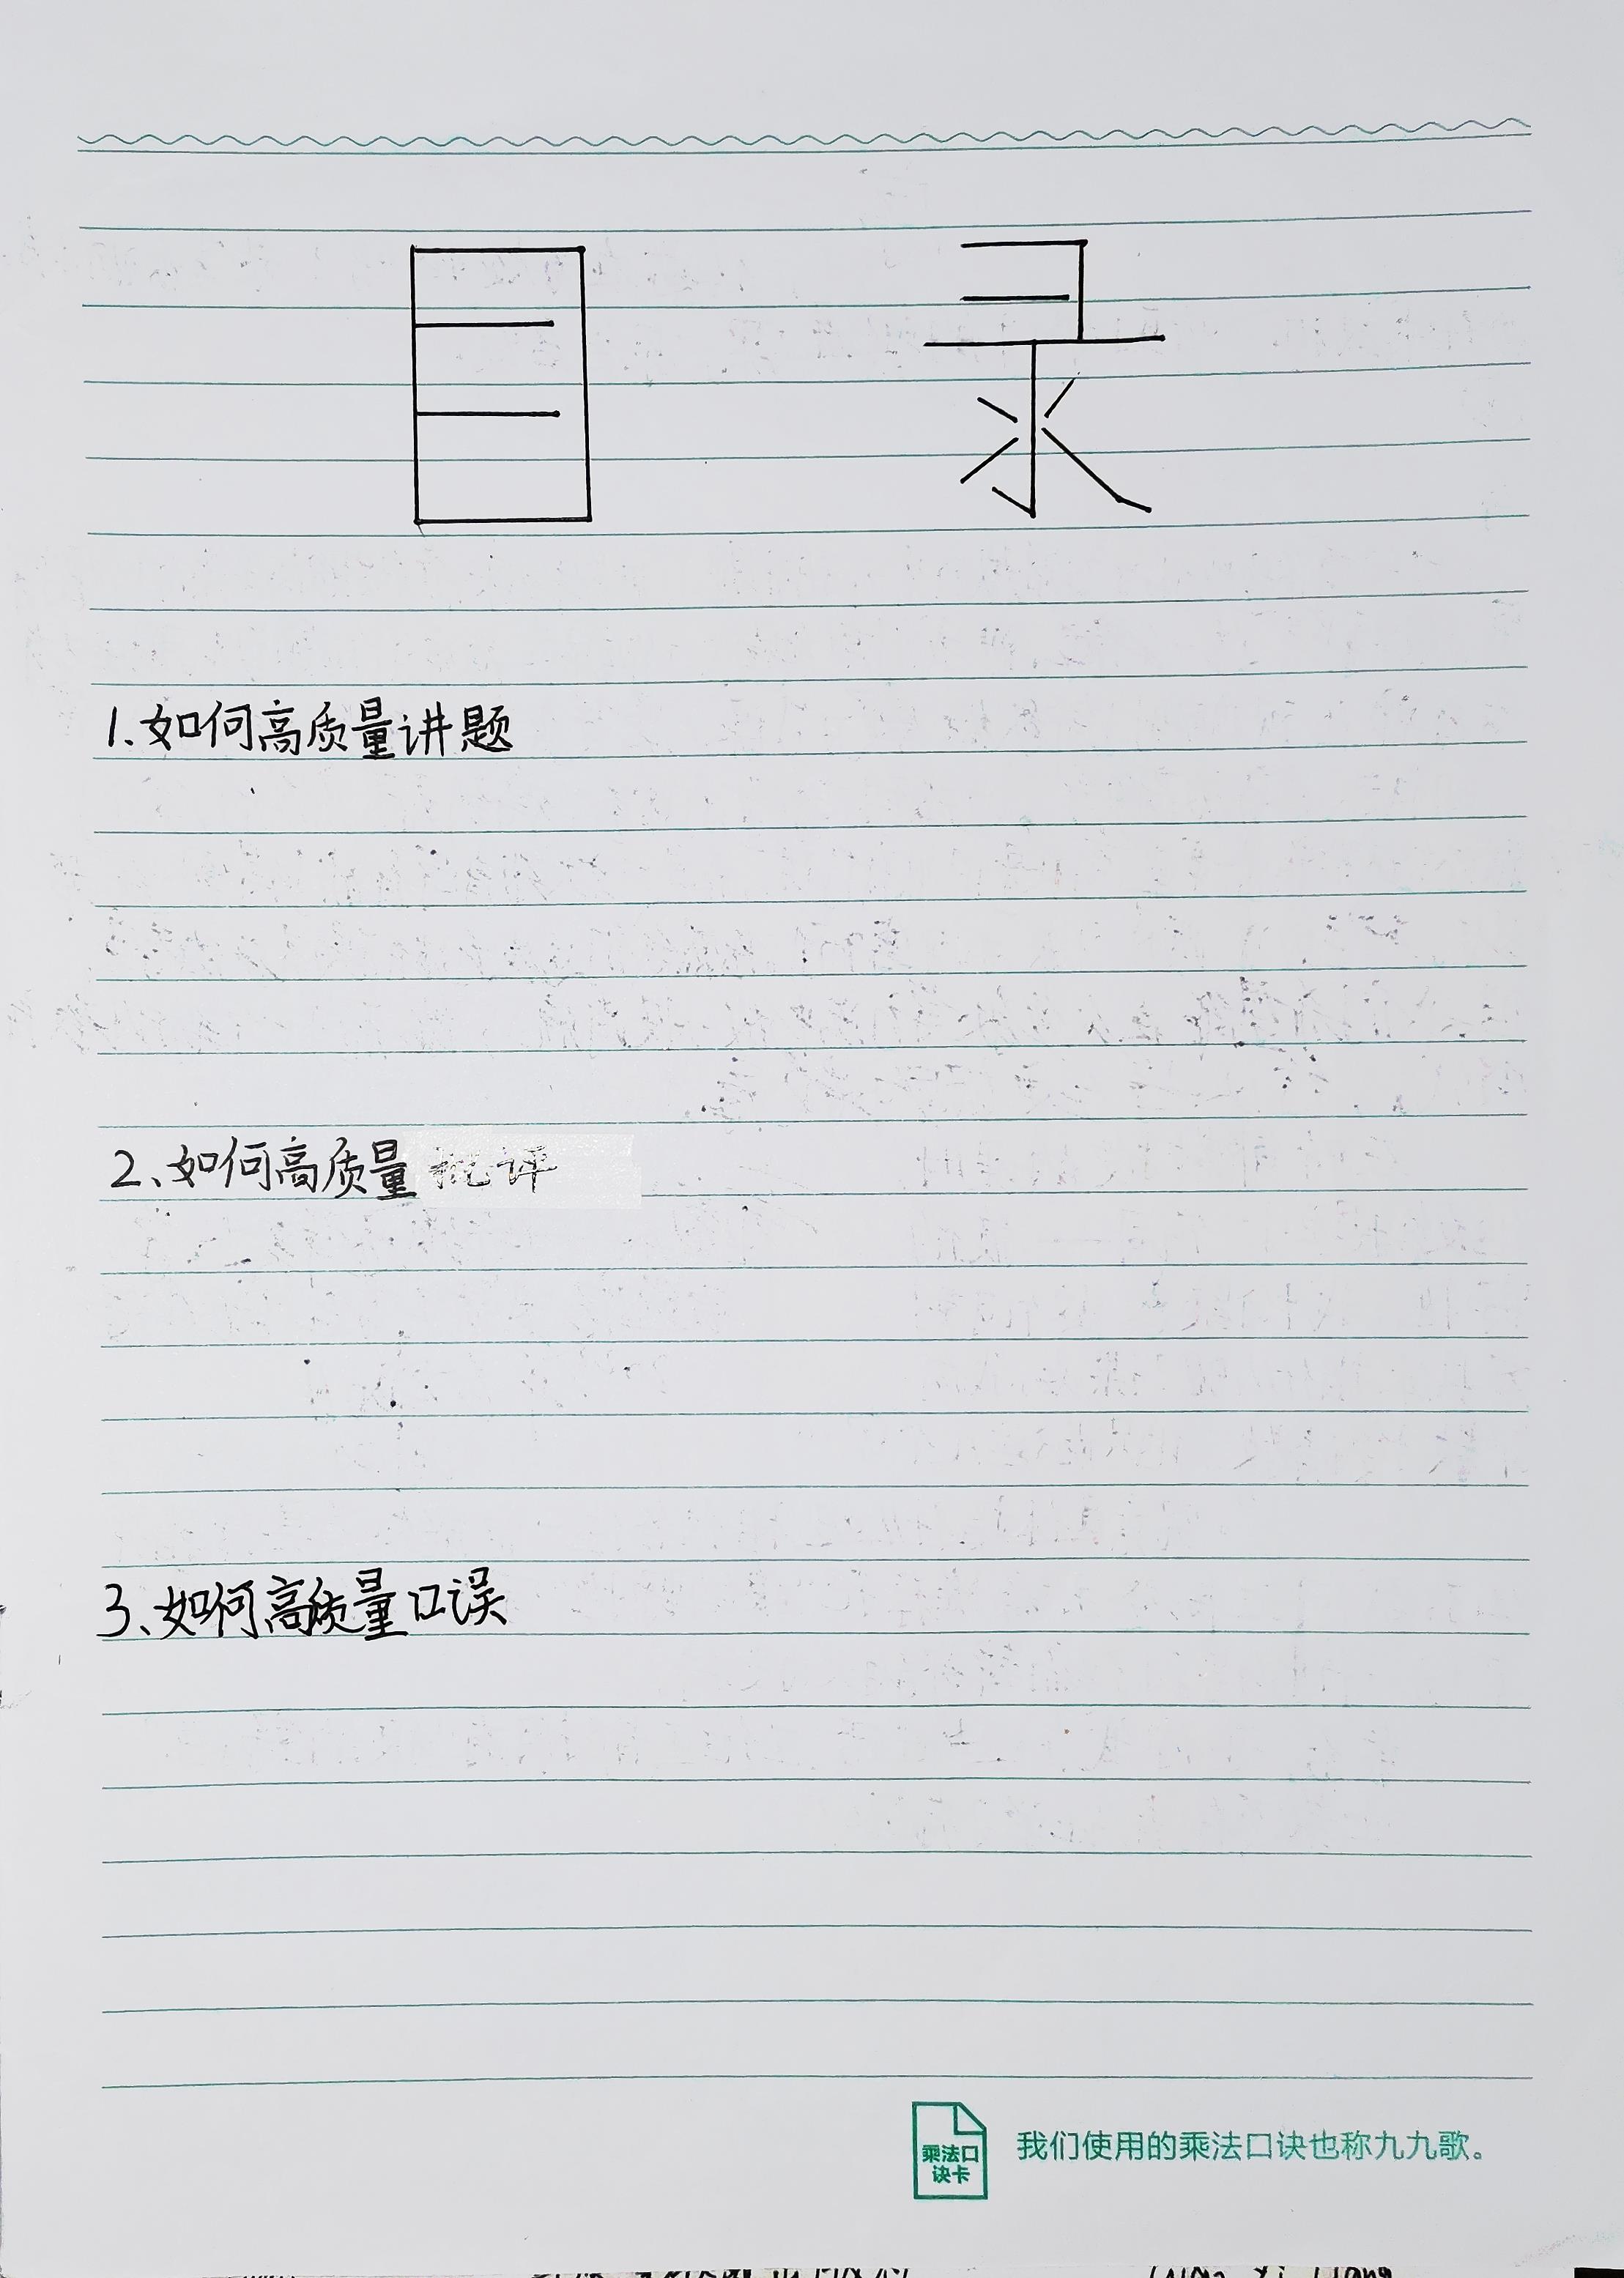 目 录
1、如何高质量讲题
2、如何高质量批评
3、如何高质量口误
乘法口
诀卡
我们使用的乘法口诀也称九九歌。